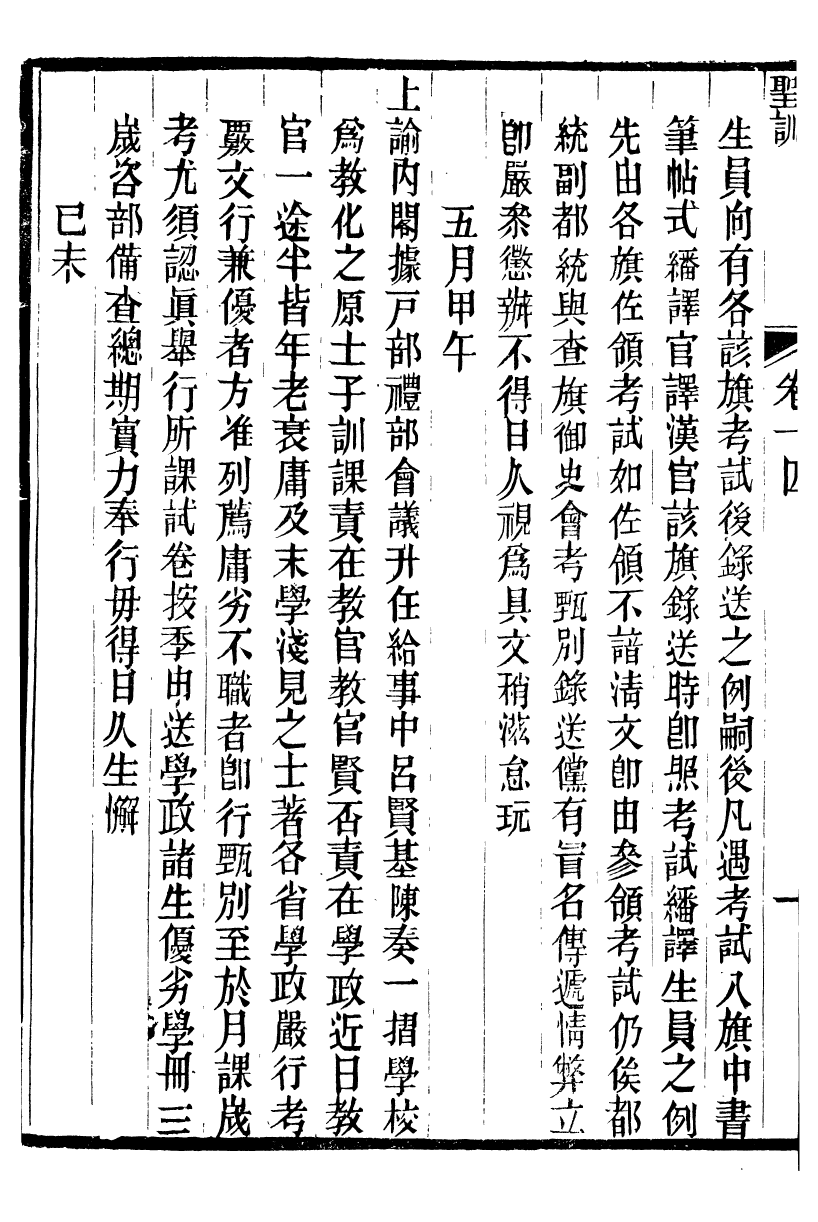 聖訓
卷一四
一
生員向有各該旗考試後錄送之例嗣後凡遇考試八旗中書
筆帖式繙譯官譯漢官該旗錄送時卽照考試繙譯生員之例
先由各旗佐領考試如佐領不諳淸文卽由參領考試仍俟都
統副都統與查旗御史會考甄別錄送儻有冒名傳遞情弊立
卽嚴叅懲辦不得日久視爲具文稍滋怠玩
五月甲午
上諭內閣據戸部禮部會議升任給事中呂賢基陳奏一摺學校
爲教化之原士子訓課責在教官教官賢否責在學政近日教
官一途半皆年老衰庸及末學淺見之士著各省學政嚴行考
覈文行兼優者方准列薦庸劣不職者卽行甄別至於月課歲
考尤須認眞舉行所課試卷按季由送學政諸生優劣學冊三
歲咨部備查總期實力奉行毋得日久生懈
己未